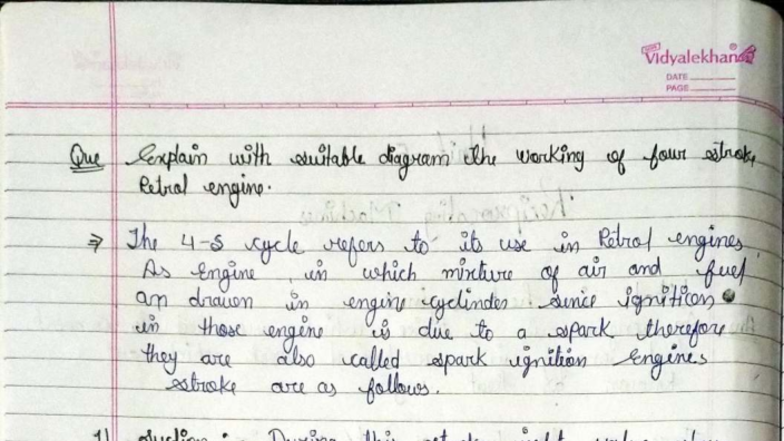 Vidyalekhan
DATE
PAGE
Que Explain with suitable diagram the working of four stroke
Petrol engine.
⇒ The 4-S cycle refers to its use in Petrol engines
As Engine, in which mixture of air and fuel
an drawn in engine cyclinder since ignition
in those engine is due to a spark therefore
they are also called spark ignition Engines
stroke are as follows.
1) Suction : During this